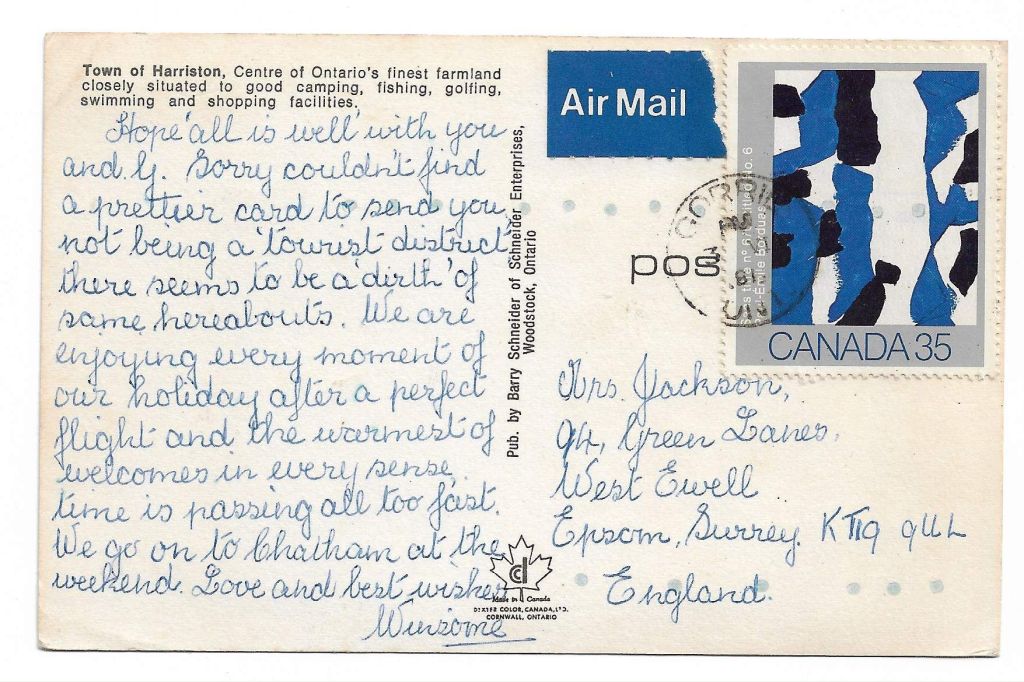 Town of Harriston, Centre of Ontario's finest farmland
closely situated to good camping, fishing, golfing,
swimming and shopping facilities.
Hope all is well with you
and G. Sorry couldn't find
a prettier card to send you,
not being a 'tourist district'
there seems to be a 'dirth' of
same hereabouts. We are
enjoying every moment of
our holiday after a perfect
flight and the warmest of
welcomes in every sense,
time is passing all too fast.
We go on to Chatham at the
weekend. Love and best wishes
Winsome
Pub. by Barry Schneider of Schneider Enterprises,
Woodstock, Ontario
Made in Canada
DEXTER COLOR, CANADA, LTD.
CORNWALL, ONTARIO
Air Mail
pos
GORRIE
PM
ONT
CANADA 35
Mrs. Jackson,
94, Green Lanes,
West Ewell
Epsom, Surrey. KT19 9UL
England.